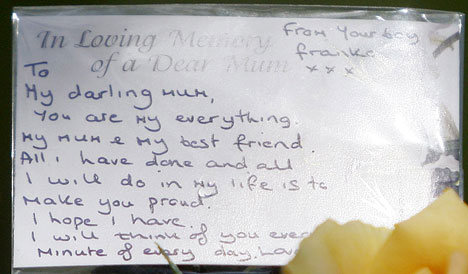 In Loving Memory
of a Dear Mum
From Your boy
frankie
x x x
To
My darling mum,
You are my everything.
my mum & my best friend.
All i have done and all
I will do in my life is to
make you proud.
I hope I have.
I will think of you
minute of every day.